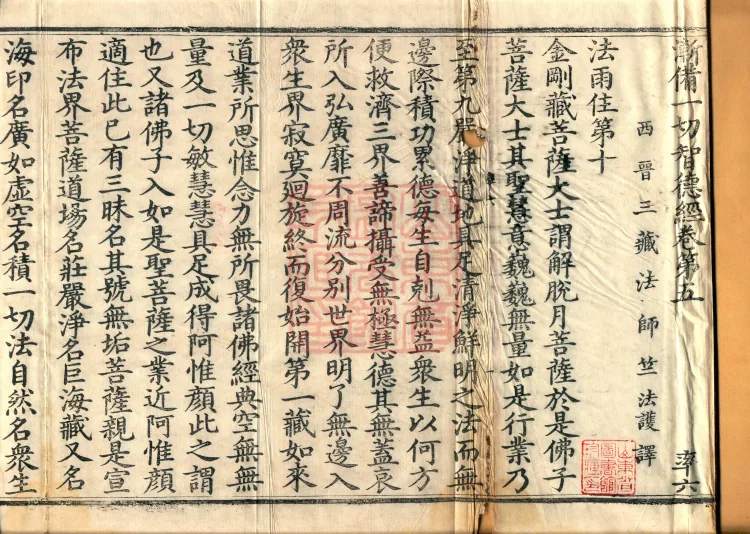 漸備一切智德經卷第五
率六
西晉三藏法師竺法護譯
法雨住第十
金剛藏菩薩大士謂解脫月菩薩於是佛子
菩薩大士其聖慧意巍巍無量如是行業乃
至第九嚴淨道地具足清淨鮮明之法而無
邊際積功累德每生自剋無益衆生以何方
便救濟三界善諦攝受無極慧德其無蓋哀
所入弘廣靡不周流分別世界明了無邊入
衆生界寂寞迴旋終而復始開第一藏如來
道業所思惟念力無所畏諸佛經典空無無
量及一切敏慧慧具足成得阿惟顔此之謂
也又諸佛子入如是聖菩薩之業近阿惟顔
適住此已有三昧名其號無垢菩薩親是宣
布法界菩薩道場名莊嚴淨名巨海藏又名
海印名廣如虛空名積一切法自然名衆生